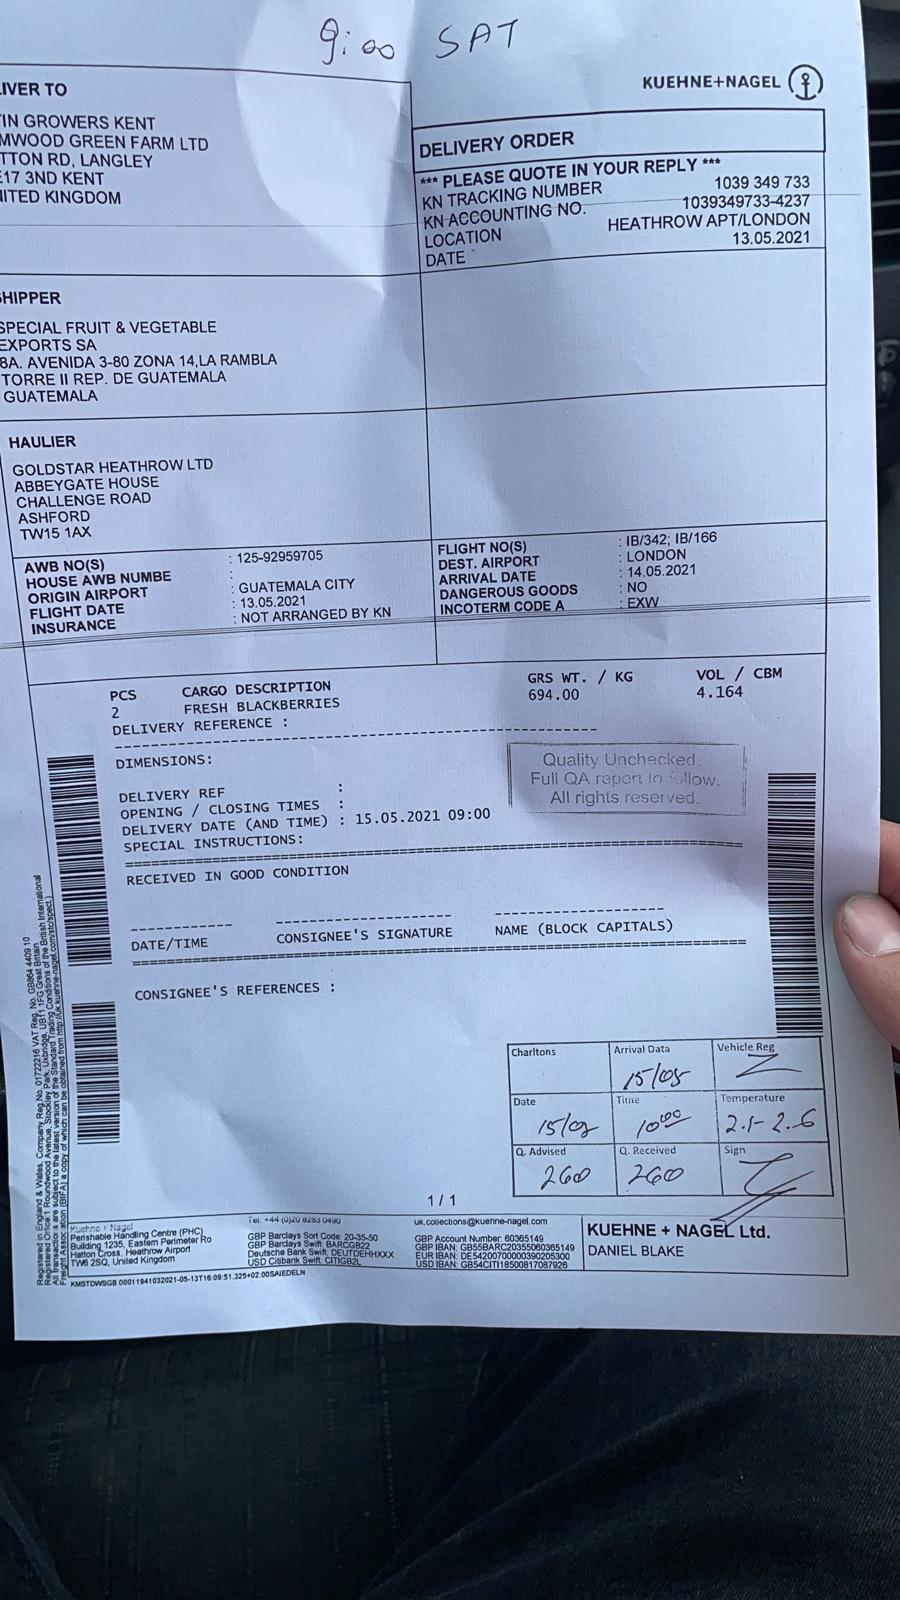 9:00 SAT
KUEHNE+NAGEL
IVER TO
IN GROWERS KENT
MWOOD GREEN FARM LTD
TTON RD, LANGLEY
E17 3ND KENT
NITED KINGDOM
DELIVERY ORDER
*** PLEASE QUOTE IN YOUR REPLY ***
KN TRACKING NUMBER 1039 349 733
KN ACCOUNTING NO. 1039349733-4237
LOCATION HEATHROW APT/LONDON
DATE 13.05.2021
SHIPPER
SPECIAL FRUIT & VEGETABLE
EXPORTS SA
8A. AVENIDA 3-80 ZONA 14,LA RAMBLA
TORRE II REP. DE GUATEMALA
GUATEMALA
HAULIER
GOLDSTAR HEATHROW LTD
ABBEYGATE HOUSE
CHALLENGE ROAD
ASHFORD
TW15 1AX
AWB NO(S) : 125-92959705
HOUSE AWB NUMBE :
ORIGIN AIRPORT : GUATEMALA CITY
FLIGHT DATE : 13.05.2021
INSURANCE : NOT ARRANGED BY KN
FLIGHT NO(S) : IB/342; IB/166
DEST. AIRPORT : LONDON
ARRIVAL DATE : 14.05.2021
DANGEROUS GOODS : NO
INCOTERM CODE A : EXW
PCS CARGO DESCRIPTION GRS WT. / KG VOL / CBM
2 FRESH BLACKBERRIES 694.00 4.164
DELIVERY REFERENCE :
DIMENSIONS:
Quality Unchecked.
Full QA report to follow.
All rights reserved.
DELIVERY REF :
OPENING / CLOSING TIMES :
DELIVERY DATE (AND TIME) : 15.05.2021 09:00
SPECIAL INSTRUCTIONS:
RECEIVED IN GOOD CONDITION
DATE/TIME CONSIGNEE'S SIGNATURE NAME (BLOCK CAPITALS)
CONSIGNEE'S REFERENCES :
Charltons Arrival Data Vehicle Reg
15/05
Date Time Temperature
15/05 10:00 2.1-2.6
Q. Advised Q. Received Sign
260 260
1 / 1
Registered in England & Wales, Company Reg.No. 01722216 VAT Reg. No. GB864 4409 10
Registered Office:1 Roundwood Avenue, Stockley Park, Uxbridge, UB11 1FG Great Britain
All transactions are subject to the latest version of the Standard Trading Conditions of the British International
Freight Association (BIFA) a copy of which can be obtained from http://uk.kuehne-nagel.com/stc/spect.)
Kuehne + Nagel
Perishable Handling Centre (PHC)
Building 1235, Eastern Perimeter Ro
Hatton Cross, Heathrow Airport
TW6 2SQ, United Kingdom
Tel. +44 (0)20 8283 0490
GBP Barclays Sort Code: 20-35-50
GBP Barclays Swift: BARCGB22
Deutsche Bank Swift: DEUTDEHHXXX
USD Citibank Swift: CITIGB2L
uk.collections@kuehne-nagel.com
GBP Account Number: 60365149
GBP IBAN: GB55BARC20355060365149
EUR IBAN: DE54200700000390205300
USD IBAN: GB54CITI18500817087926
KUEHNE + NAGEL Ltd.
DANIEL BLAKE
KMSTDWSGB 00011941032021-05-13T16:09:51.325+02:00SAIEDELN